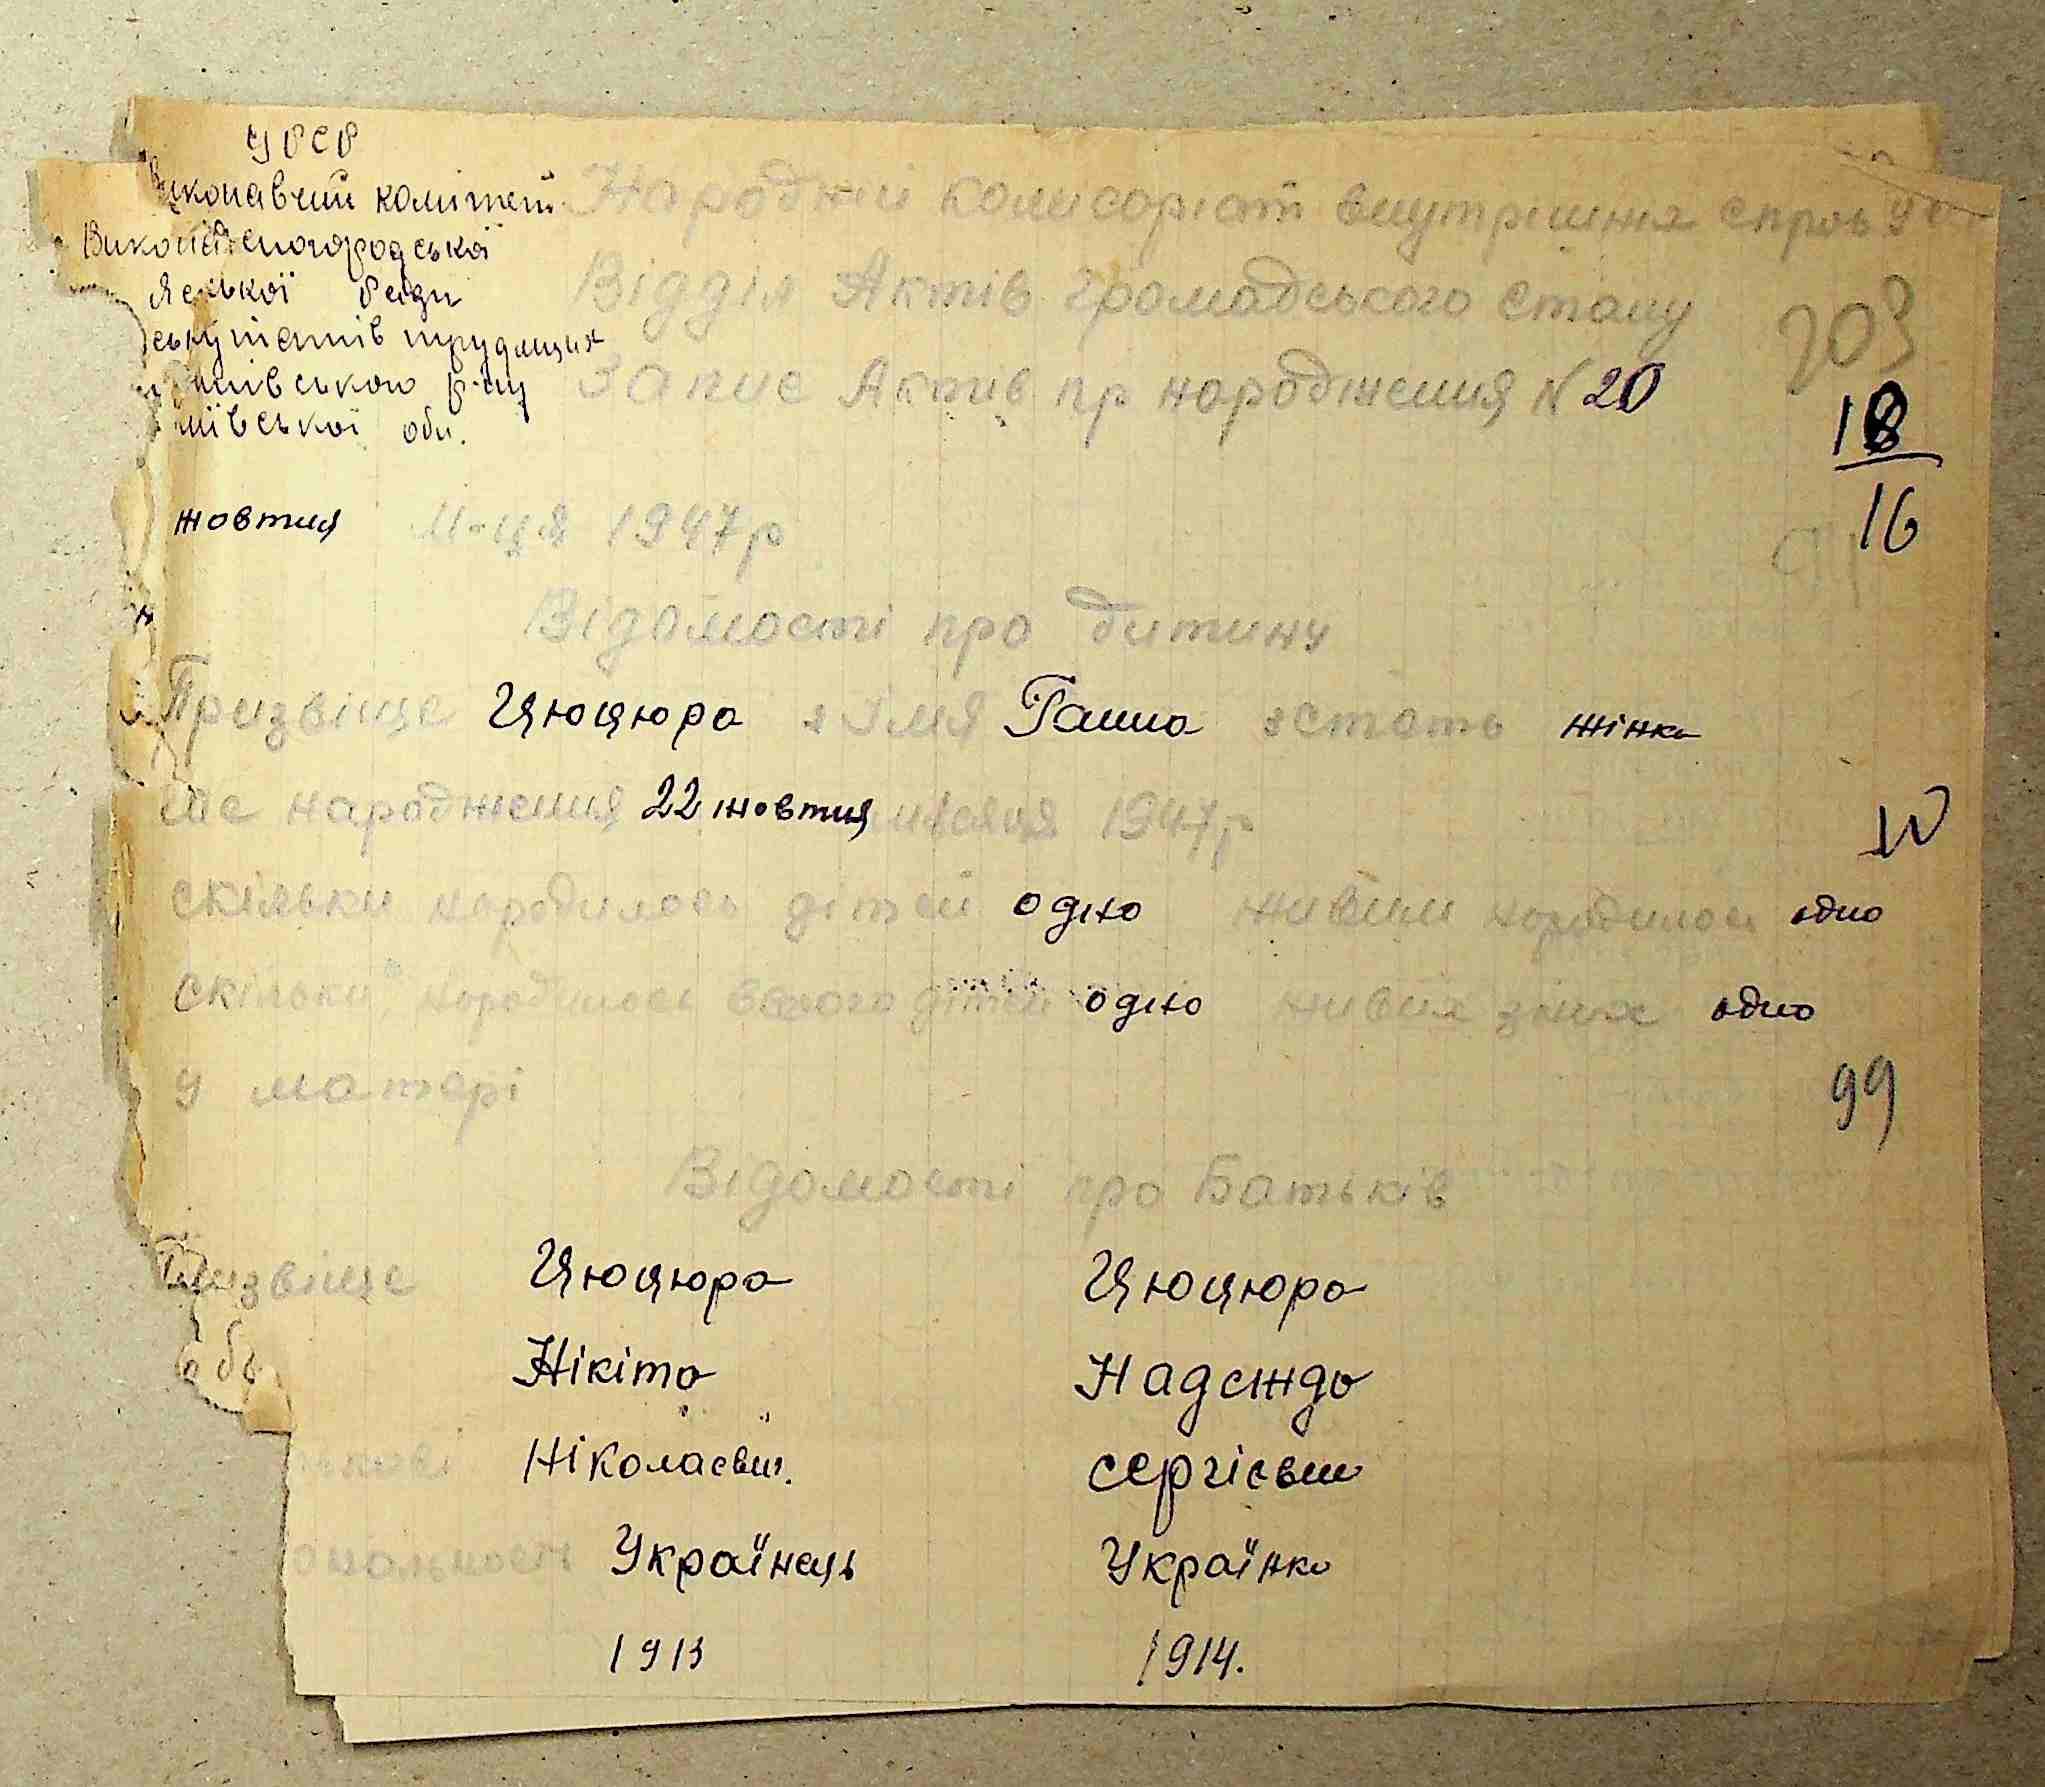 УРСР
Виконавчий комітет
сільської Ради
депутатів трудящих
р-ну
обл.
Народний комисаріат внутрішніх справ УСР
Відділ Актів громадського стану
Запис Актів пр народження N 20
203
18
16
жовтня м-ця 1947р
Відомості про дитину
Призвіще Цюцюра 2 Імя Ганна 3 стать жінка
народження 22 жовтня місяця 1947р
10
скільки народилось дітей одно живими народилось одно
скільки народилось всього дітей одно живих зних одно
у матері
99
Відомості про Батьків
Призвіще Цюцюра Цюцюра
Нікіта Надежда
Ніколаєвич. Сергієвна
ональность Українець Українка
1913 1914.